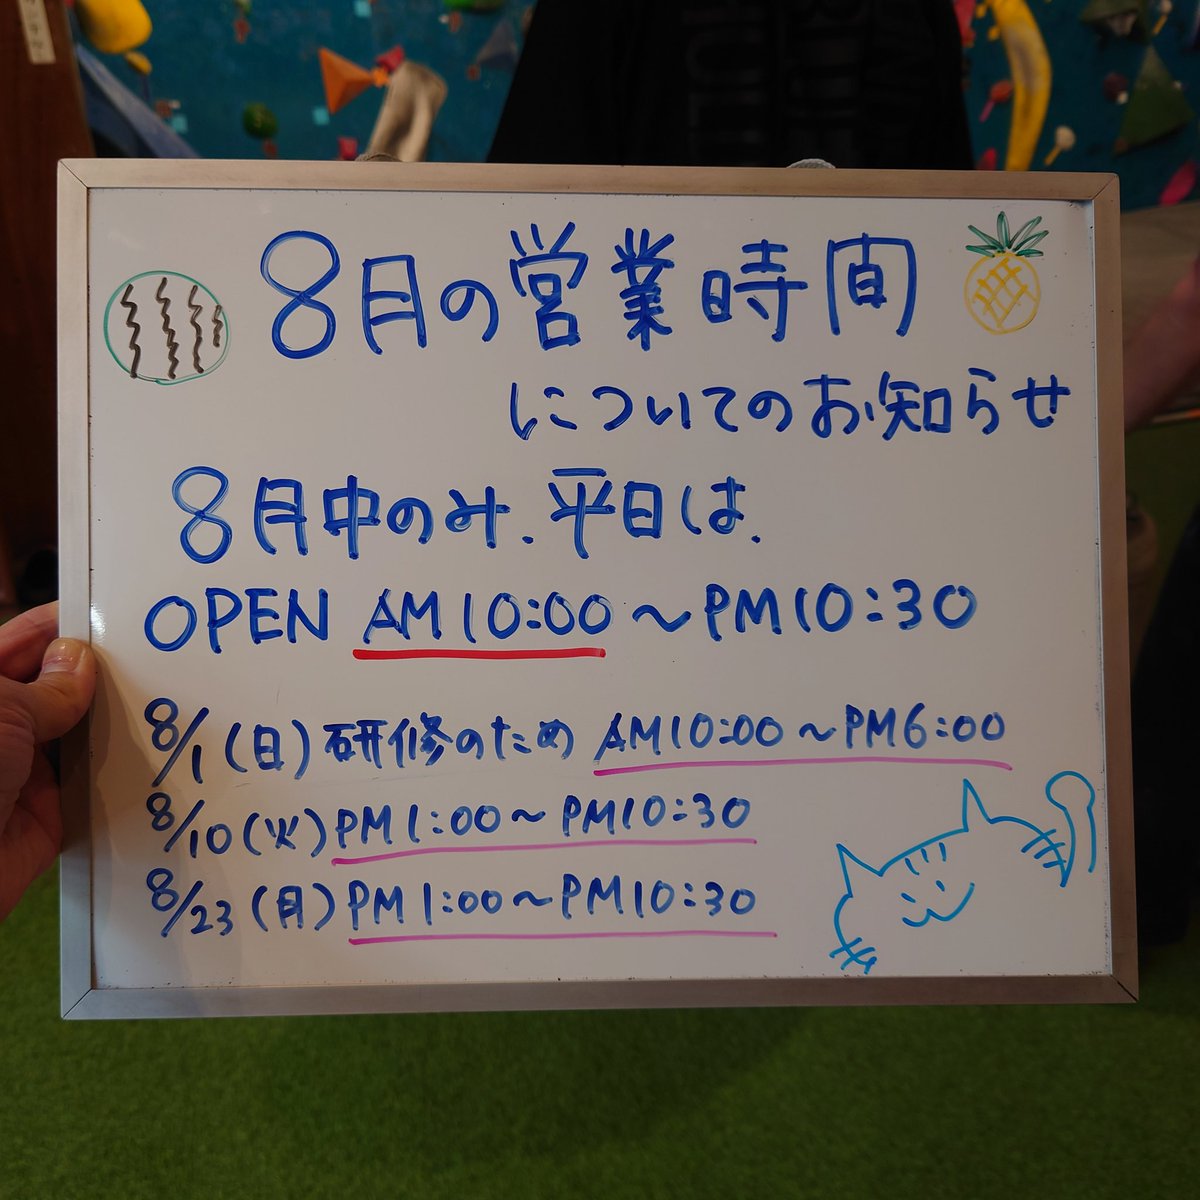 8月の営業時間
についてのお知らせ
8月中のみ、平日は、
OPEN AM10:00～PM10:30
8/1(日)研修のため AM10:00～PM6:00
8/10(火)PM1:00～PM10:30
8/23(月)PM1:00～PM10:30